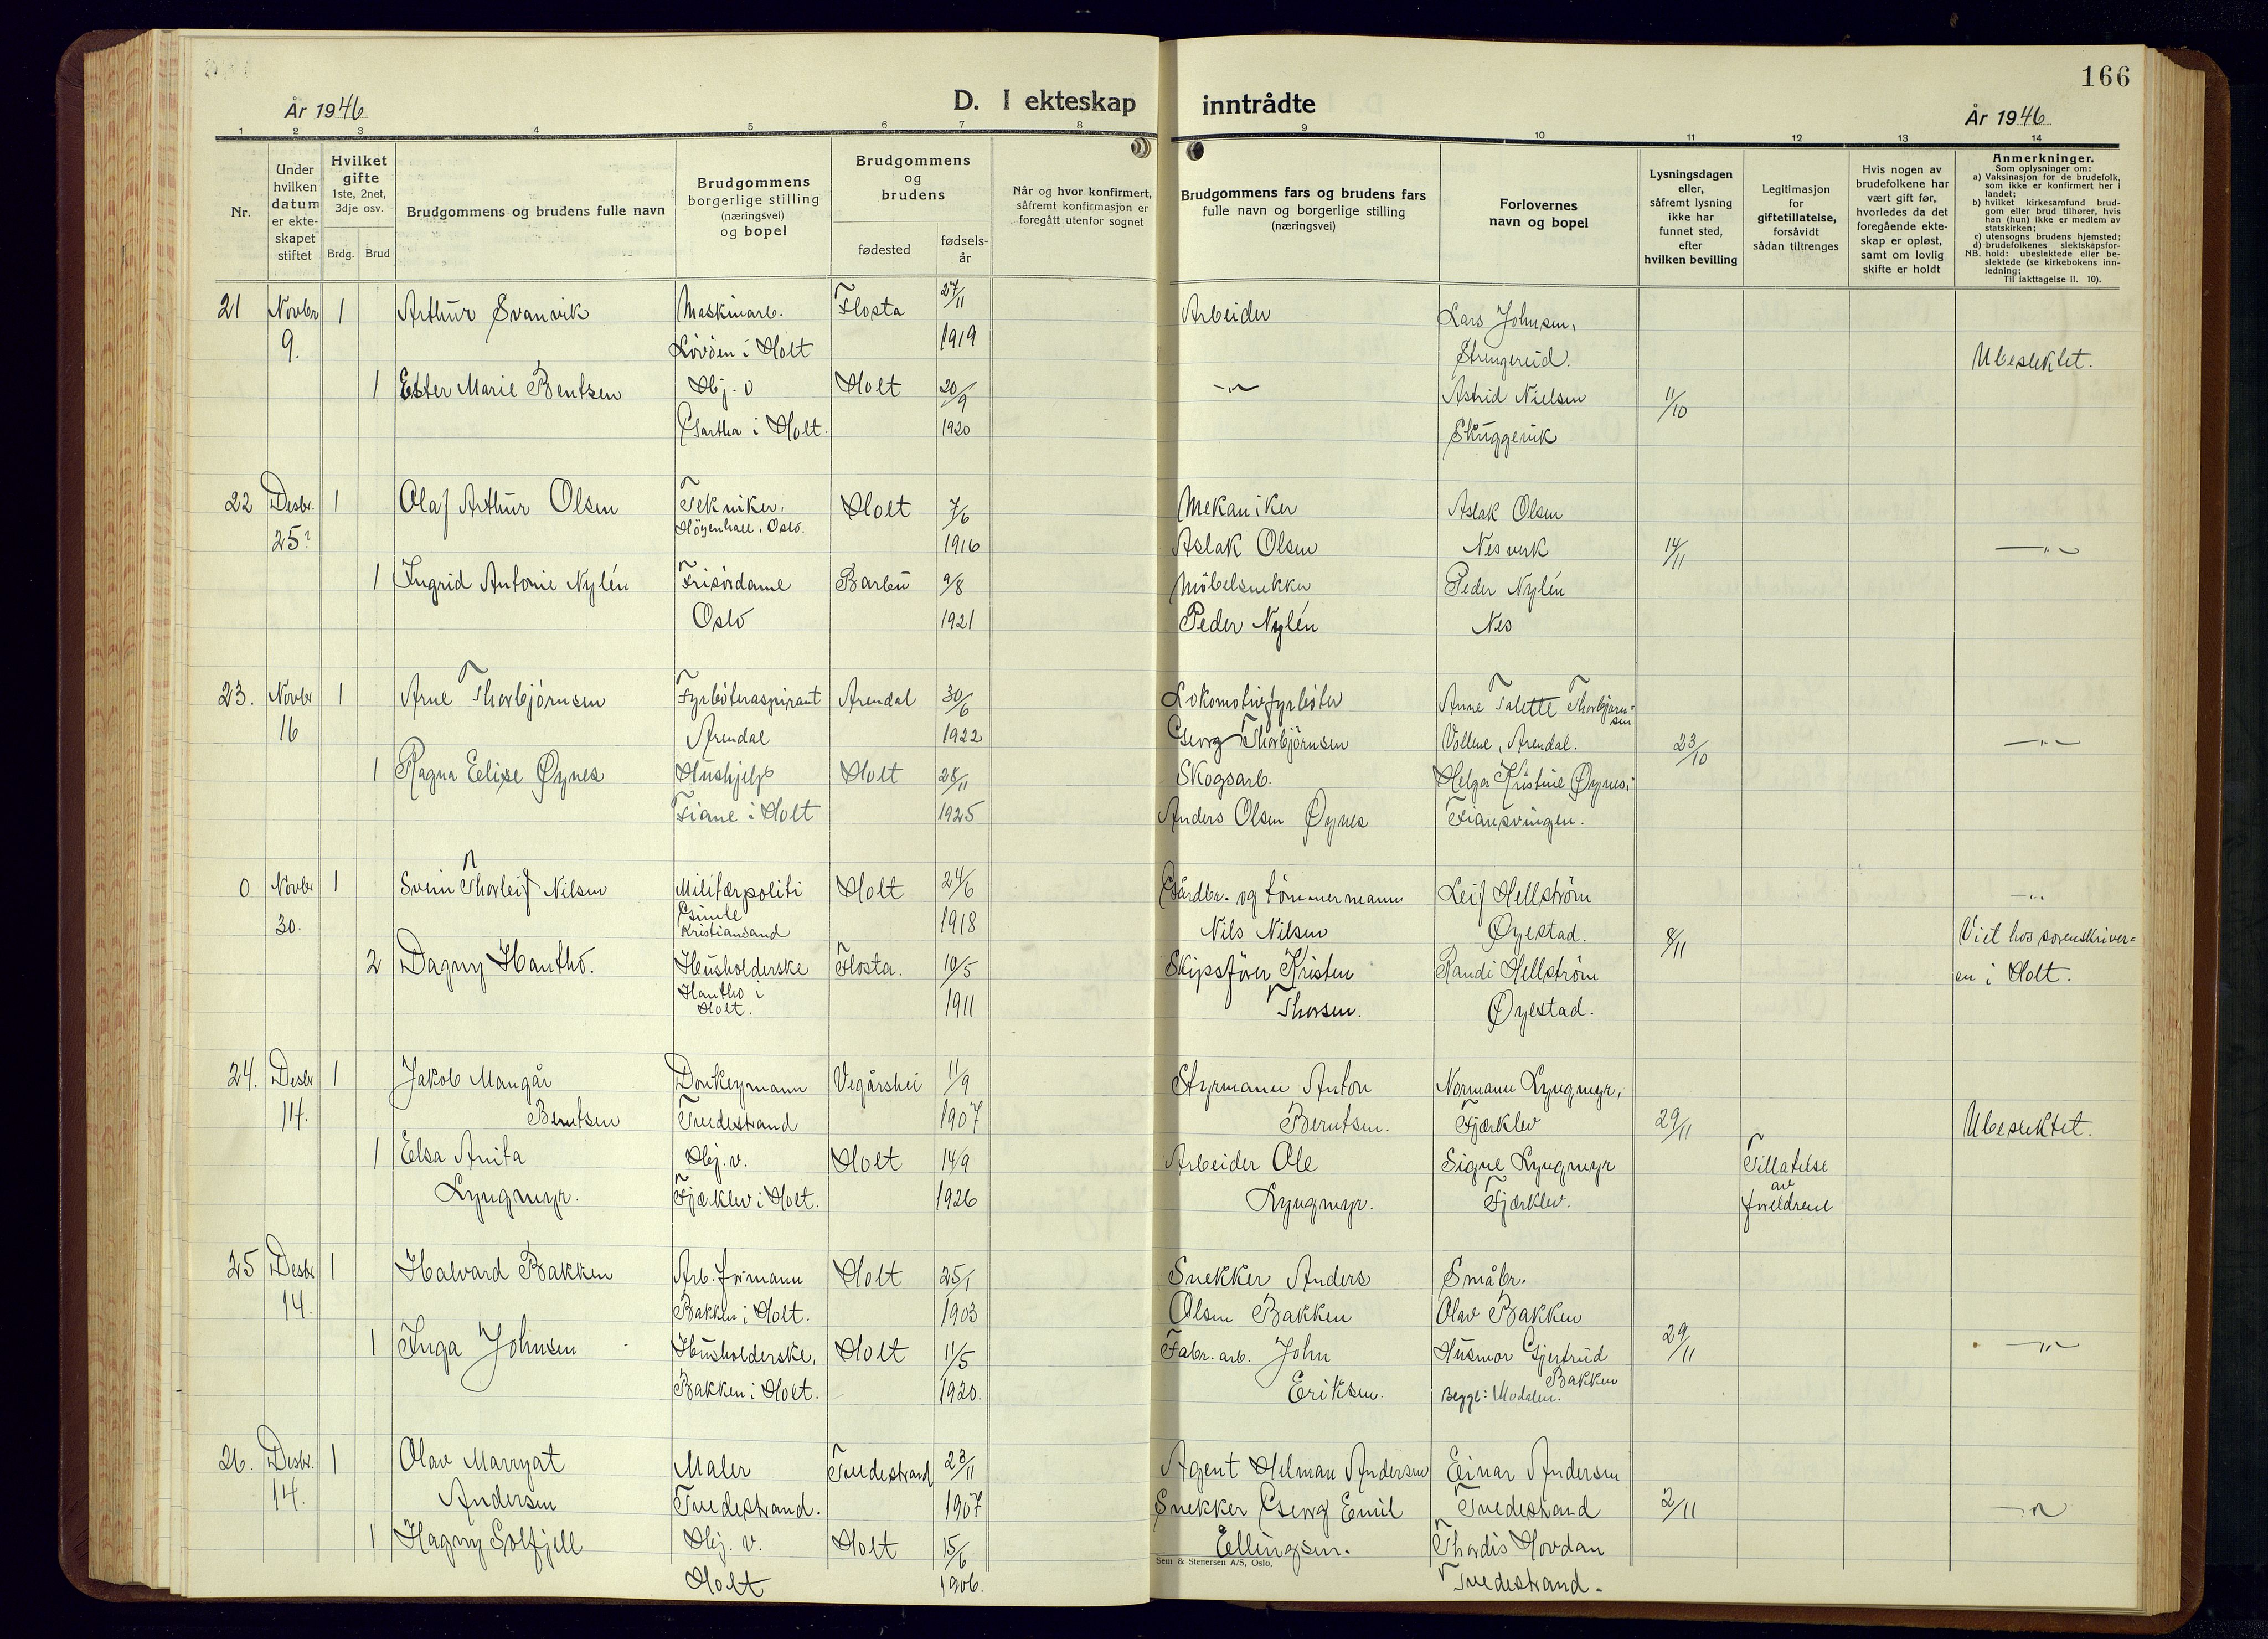 166
År 1946
D. I ekteskap inntrådte
År 1946
1 2 3 4 5 6 7 8 9 10 11 12 13 14
Nr.
Under hvilken datum er ekteskapet stiftet
Hvilket gifte 1ste, 2net, 3dje osv.
Brdg. Brud
Brudgommens og brudens fulle navn
Brudgommens borgerlige stilling (næringsvei) og bopel
Brudgommens og brudens
fødested
fødsels-år
Når og hvor konfirmert, såfremt konfirmasjon er foregått utenfor sognet
Brudgommens fars og brudens fars fulle navn og borgerlige stilling (næringsvei)
Forlovernes navn og bopel
Lysningsdagen eller, såfremt lysning ikke har funnet sted, efter hvilken bevilling
Legitimasjon for giftetillatelse, forsåvidt sådan tiltrenges
Hvis nogen av brudefolkene har vært gift før, hvorledes da det foregående ekteskap er opløst, samt om lovlig skifte er holdt
Anmerkninger.
Som oplysninger om:
a) Vaksinasjon for de brudefolk, som ikke er konfirmert her i landet;
b) hvilket kirkesamfund brudgom eller brud tilhører, hvis han (hun) ikke er medlem av statskirken;
c) utensogns brudens hjemsted;
d) brudefolkenes slektskapsforhold: ubeslektede eller beslektede (se kirkebokens innledning;
NB. Til iakttagelse II. 10).
21 Novbr 1 Arthur Svanvik Maskinarb. Flosta 27/11 Arbeider Lars Johnsen,
9. Lövöen i Holt 1919 Strengereid. Ubeslektet.
1 Ester Marie Bentsen Hj. v Holt 20/9 -"- Astrid Nielsen 11/10
Gartha i Holt. 1920 Skuggevik
22 Desbr. 1 Olaf Arthur Olsen Tekniker, Holt 7/6 Mekaniker Aslak Olsen
25? Höyenhall, Oslo. 1916 Aslak Olsen Nesverk 14/11 -"-
1 Ingrid Antonie Nylén Frisördame Barbu 9/8 Möbelsnekker Peder Nylén
Oslo 1921 Peder Nylén Nes
23. Novbr 1 Arne Thorbjörnsen Fyrböteraspirant Arendal 30/6 Lokomotivfyrböter Anne Talette Thorbjörn=
sen
16 Arendal 1922 Georg Thorbjörnsen Vollene, Arendal. 23/10 -"-
1 Ragna Elise Øynes Hushjelp Holt 28/11 Skogsarb. Helga Kristine Øynes,
Fiane i Holt 1925 Anders Olsen Øynes Fianesvingen.
0 Novbr 1 Svein Thorleif Nilsen Militærpoliti Holt 24/6 Gårdbr. og tömmermann Leif Hellström -"-
30. Gimle Kristiansand 1918 Nils Nilsen Øyestad. 8/11 Viet hos sorenskriver=
2 Dagny Hanthо. Husholderske Flosta. 10/5 Skipsförer Kristen Randi Hellström en i Holt.
Hantho i Holt. 1911 Thorsen. Øyestad.
24. Desbr 1 Jakob Mangår Donkeymann Vegårshei 11/9 Styrmann Anton Normann Lyngmyr,
14. Berntsen Tvedestrand 1907 Berntsen. Fjærklev 29/11 Ubeslektet.
1 Elsa Anita Hj. v. Holt 14/9 Arbeider Ole Signe Lyngmyr Tillatelse
av
Lyngmyr. Fjærklev i Holt. 1926 Lyngmyr. Fjærklev. foreldrene
25 Desbr 1 Halvard Bakken Arb. formann Holt 25/1 Snekker Anders Småbr.
14. Bakken i Holt. 1903 Olsen Bakken Olav Bakken
1 Inga Johnsen Husholderske, Holt 11/5 Fabr. arb. John Husmor Gjertrud 29/11 -"-
Bakken
Bakken i Holt. 1920. Eriksen. Begge: Modalen.
26. Desbr. 1 Olav Marryat Maler Tvedestrand 23/11 Agent Hilman Andersen Einar Andersen
14. Andersen Tvedestrand. 1907 Snekker Georg Emil Tvedestrand 2/11 -"-
1 Hagny Solfjell Hj. v. Holt 15/6 Ellingsen. Thordis Hovdan
Holt 1906. Tvedestrand.
Sem & Stenersen A/S, Oslo.